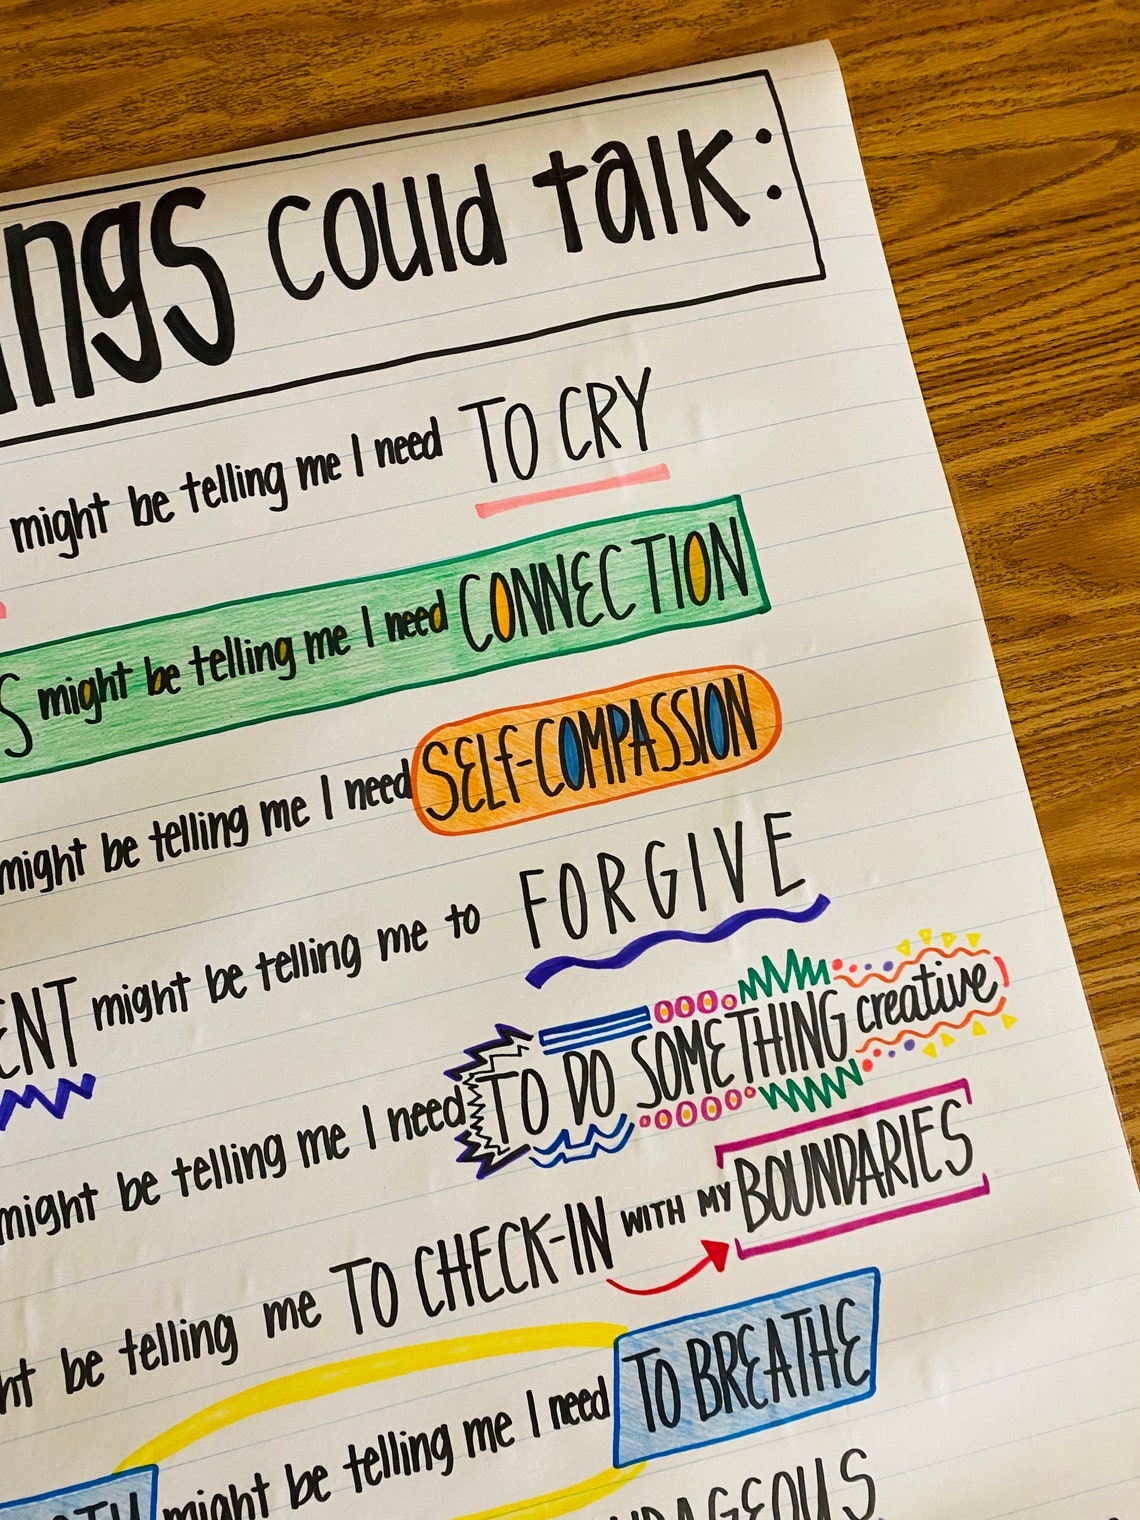 ngs could talk:
might be telling me I need TO CRY
S might be telling me I need CONNECTION
might be telling me I need SELF-COMPASSION
ENT might be telling me to FORGIVE
might be telling me I need TO DO SOMETHING creative
ht be telling me TO CHECK-IN WITH MY BOUNDARIES
might be telling me I need TO BREATHE